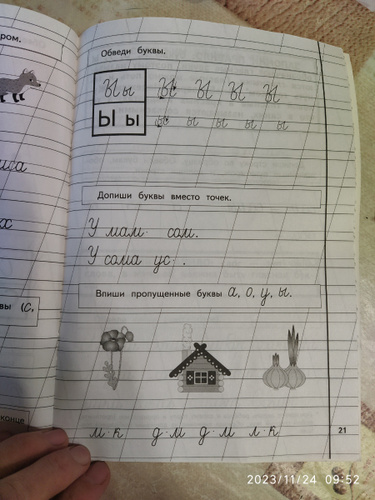 ром.
Обведи буквы.
Ы ы Ы Ы Ы Ы Ы
Ы ы ы ы ы ы ы
Допиши буквы вместо точек.
У мам· сом.
У сома ус· .
вы
Впиши пропущенные буквы а, о, у, ы.
конце
м·к д·м д·м л·к
21
2023/11/24 09:52